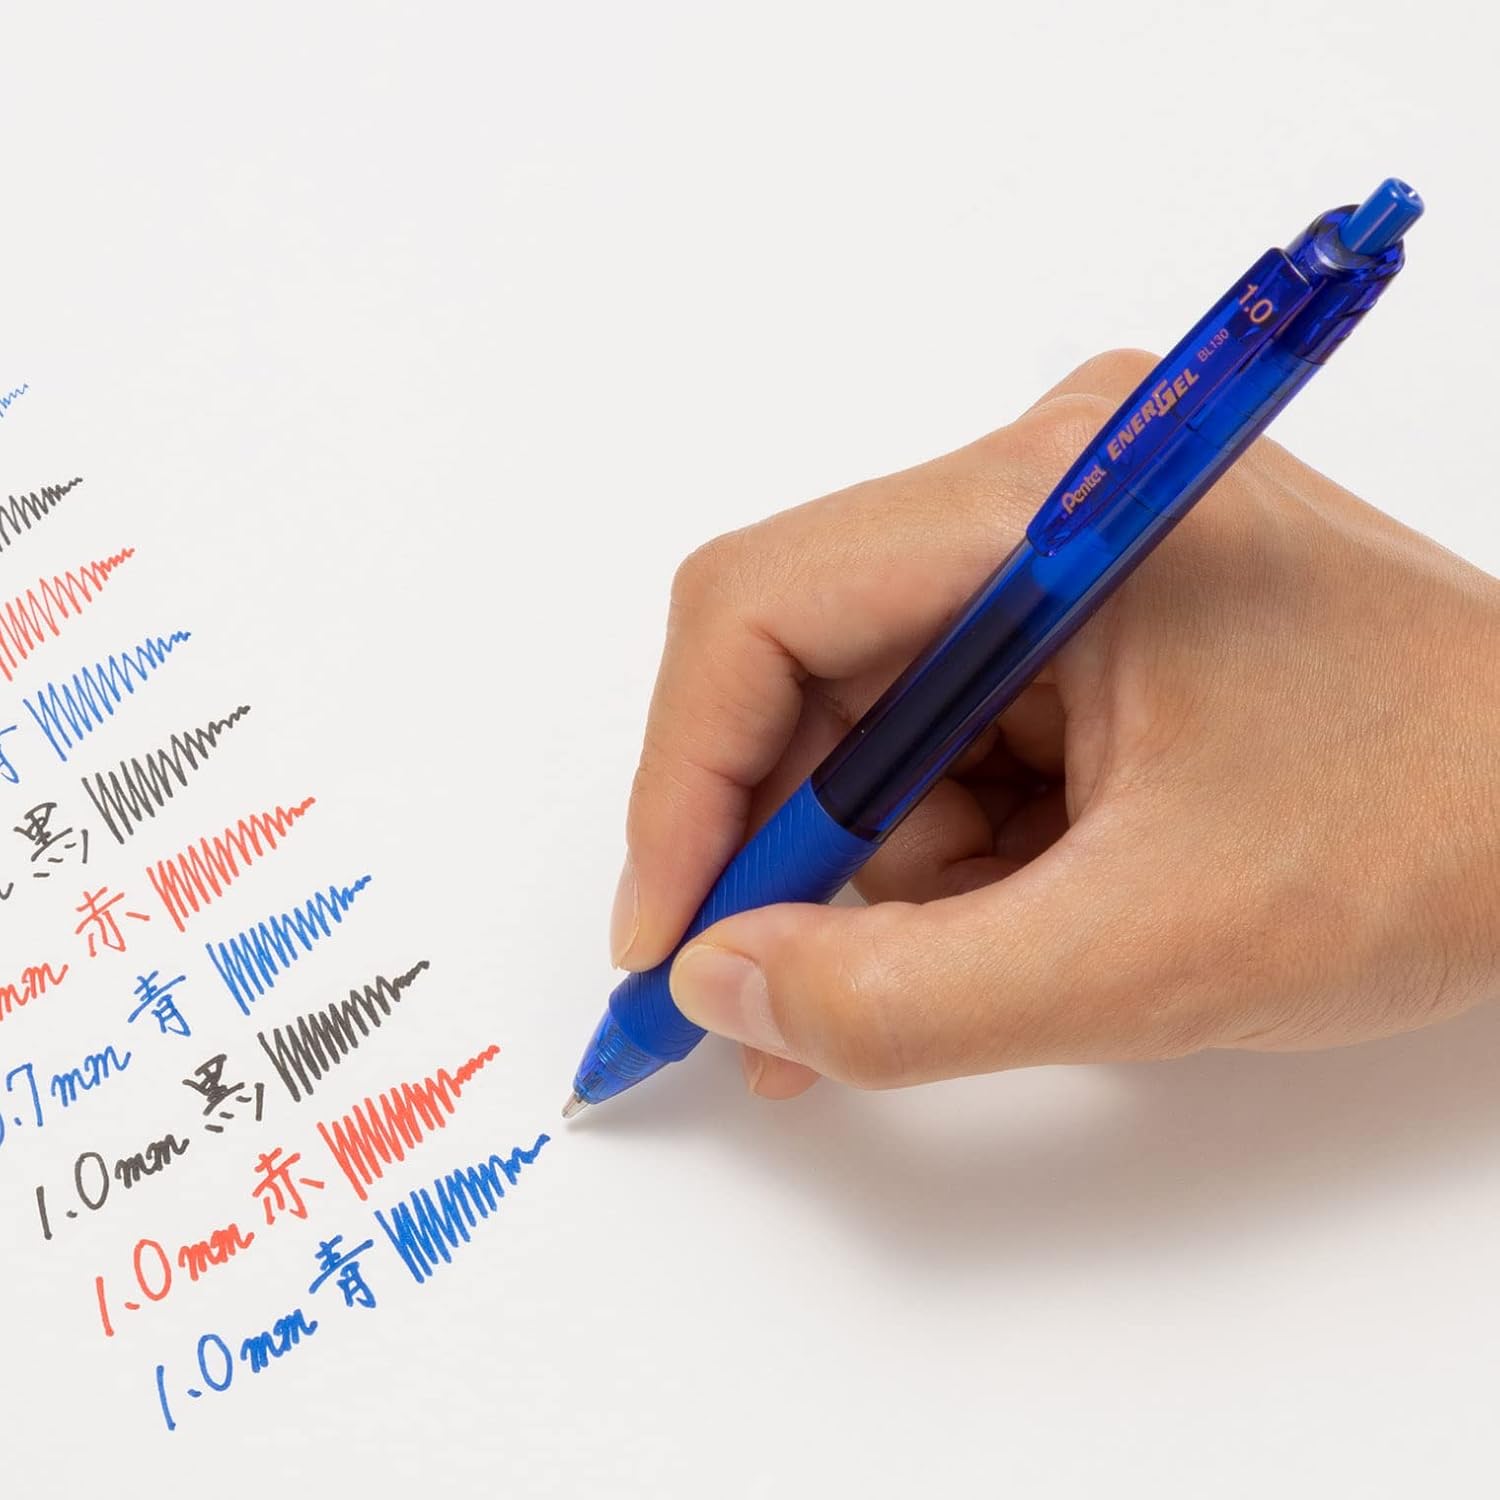 青
黒
mm 赤
.7mm 青
1.0mm 黒
1.0mm 赤
1.0mm 青
Pentel ENERGEL BL130
1.0